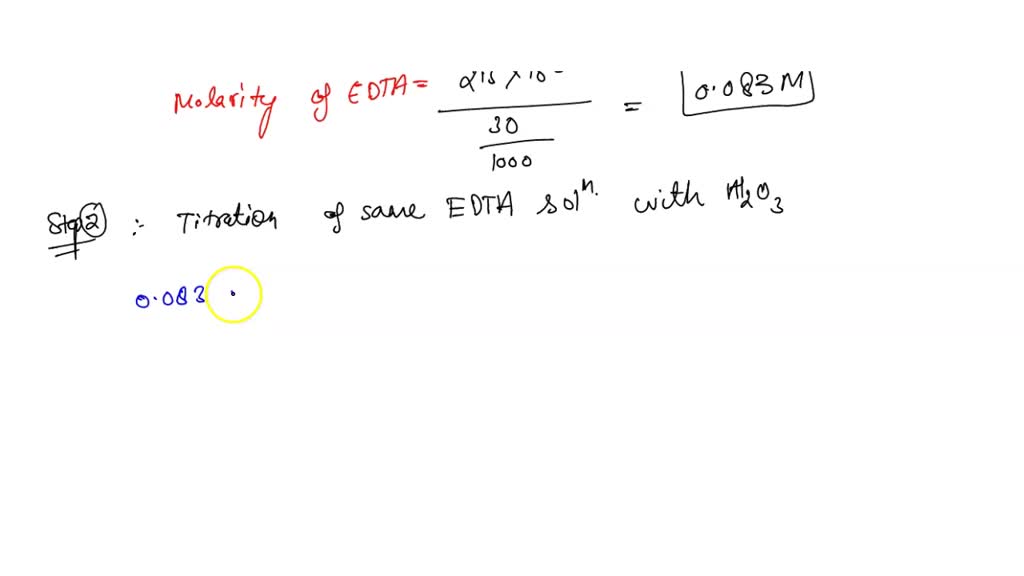 Molarity of EDTA = / 30/1000 = 0.083 M
Step ② :- Titration of same EDTA solⁿ. with Al2O3
0.083